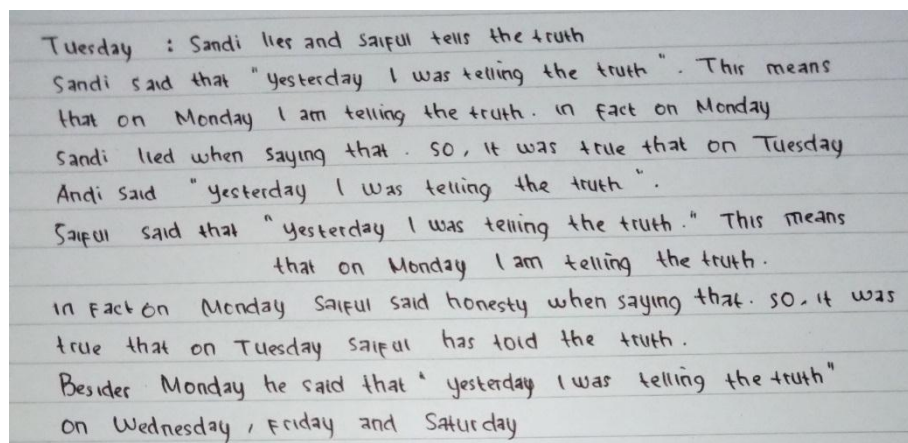 Tuesday : Sandi lies and Saiful tells the truth
Sandi said that "yesterday I was telling the truth". This means
that on Monday I am telling the truth. in fact on Monday
Sandi lied when saying that. so, it was true that on Tuesday
Andi said "yesterday I was telling the truth".
Saiful said that "yesterday I was telling the truth." This means
that on Monday I am telling the truth.
in fact on Monday Saiful said honesty when saying that. so, it was
true that on Tuesday Saiful has told the truth.
Besides Monday he said that "yesterday I was telling the truth"
on Wednesday, Friday and Saturday